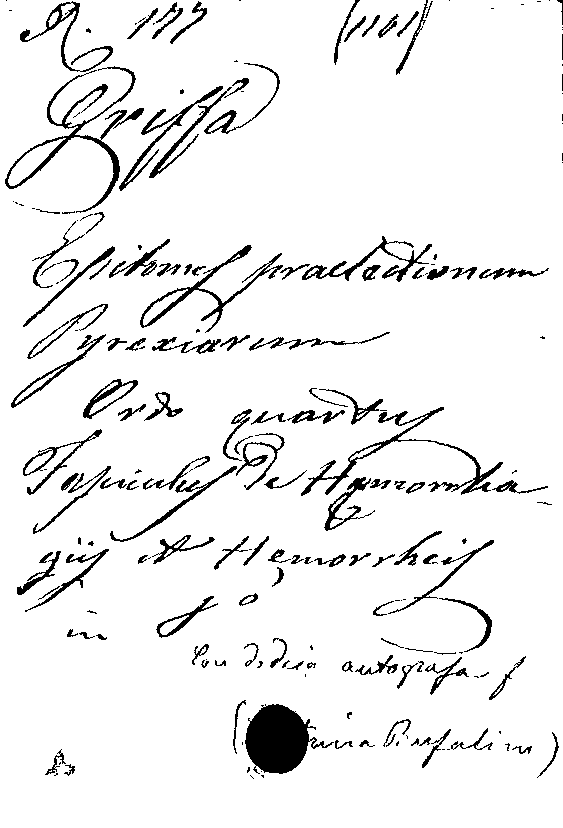 R. 177 (1101)
Griffa
Epitomes praelectionum
Pyrexiarum
Ordo quartus
Fasciculus De Hemorrha-
giis et Hemorrheis
in 8°
Con dedica autografa f
Bufalini)